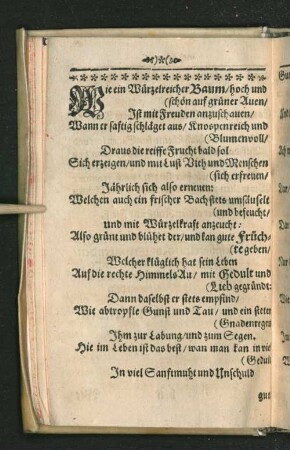 Wie ein Würzelreicher Baum/hoch und
(schön auf grüner Auen/
Ist mit Freuden anzuschauen/
Wann er safftig schläget aus/Knospenreich und
(Blumenvoll/
Draus die reiffe Frucht bald sol
Sich erzeigen/und mit Lust Vieh und Menschen
(sich erfreuen/
Jährlich sich also erneuen:
Welchen auch ein frischer Bach stets umsäuselt
(und befeucht/
und mit Würzelkraft anzeucht:
Also grünt und blühet der/und kan gute Früch-
(te geben/
Welcher klüglich hat sein Leben
Auf die rechte Himmels Au/mit Gedult und
(Lieb gegründt:
Dann daselbst er stets empfind/
Wie abtropffe Gunst und Tau/und ein steter
(Gnadenregen
Ihm zur Labung/und zum Segen.
Hie im Leben ist das best/wan man kan in viel
(Gedult
In viel Sanftmuht und Unschuld
gus